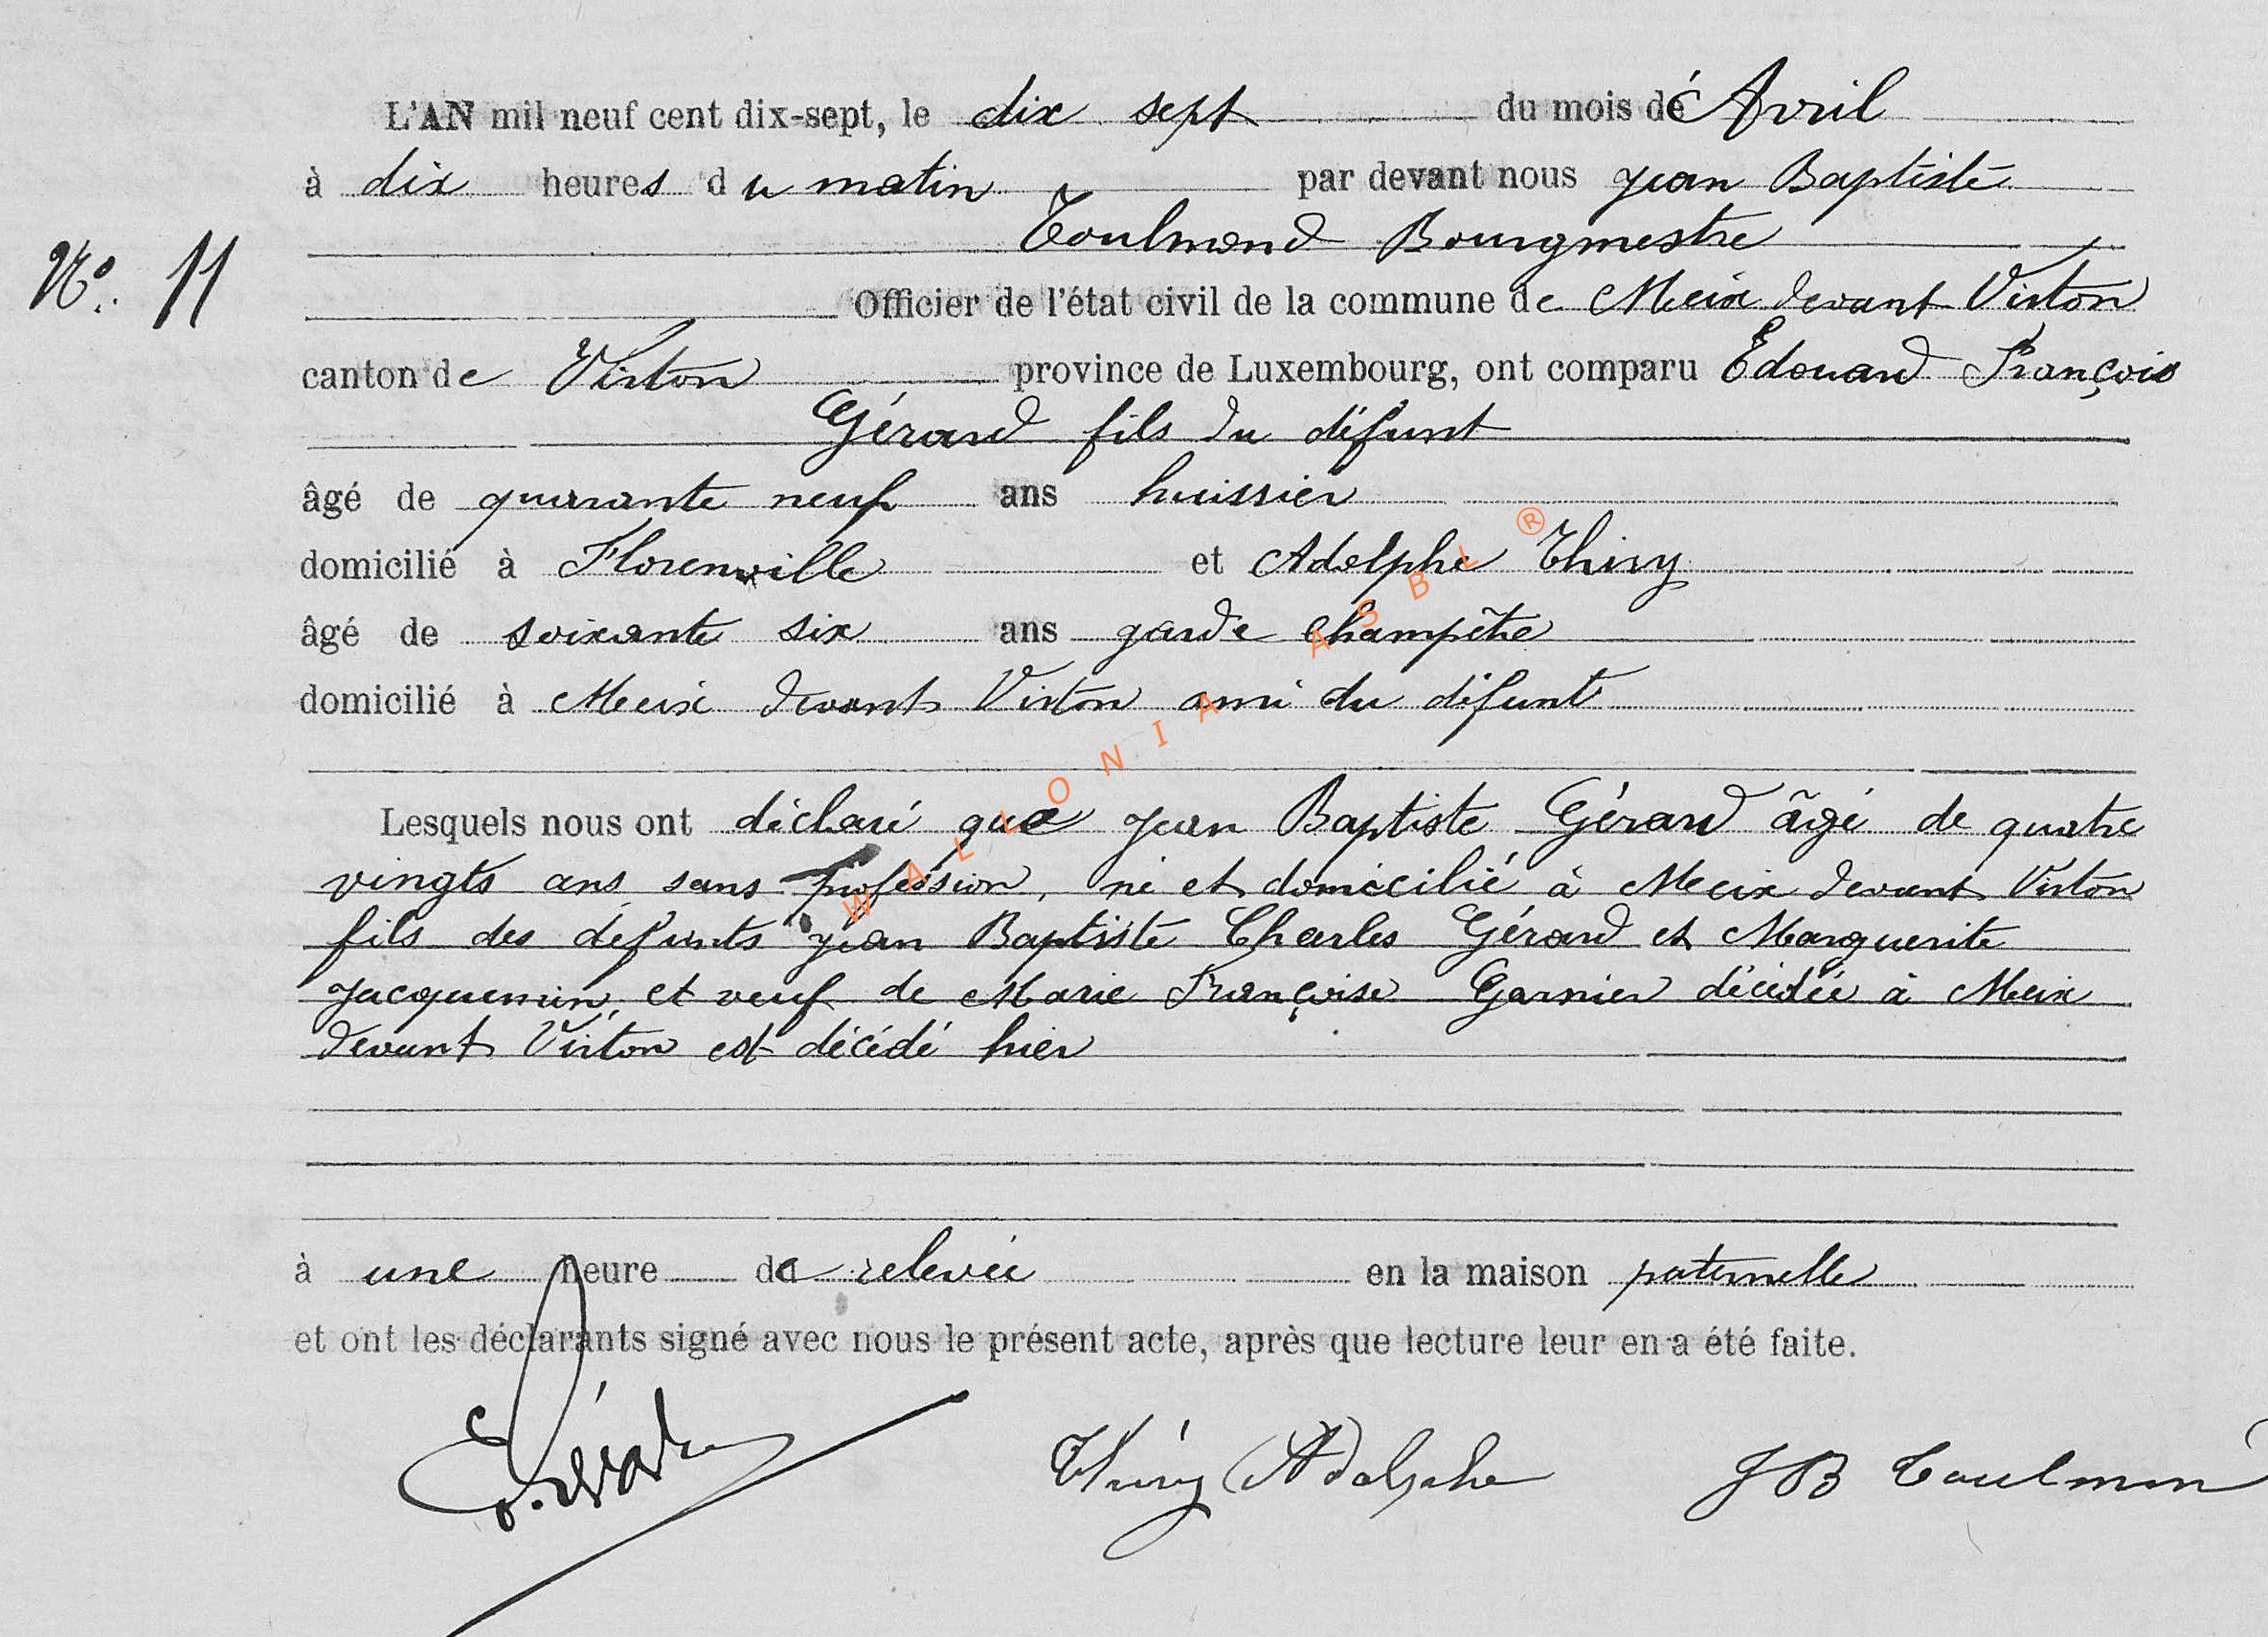 L'AN mil neuf cent dix-sept, le dix sept du mois de Avril
à dix heures du matin par devant nous Jean Baptiste
Toulmond Bourgmestre
N° 11
Officier de l'état civil de la commune de Meix devant Virton
canton de Virton province de Luxembourg, ont comparu Edouard François
Gérard fils du défunt
âgé de quarante neuf ans huissier
domicilié à Florenville et Adolphe Thiry
âgé de soixante six ans garde champêtre
domicilié à Meix devant Virton ami du défunt
Lesquels nous ont déclaré que Jean Baptiste Gérard âgé de quatre
vingts ans sans profession, né et domicilié à Meix devant Virton
fils des défunts Jean Baptiste Charles Gérard et Marguerite
Jacquemin, et veuf de Marie Françoise Garnier décédée à Meix
devant Virton est décédé hier
à une heure de relevée en la maison paternelle
et ont les déclarants signé avec nous le présent acte, après que lecture leur en a été faite.
E. Gérard Thiry Adolphe JB Toulmon
WALLONIA ASBL ®